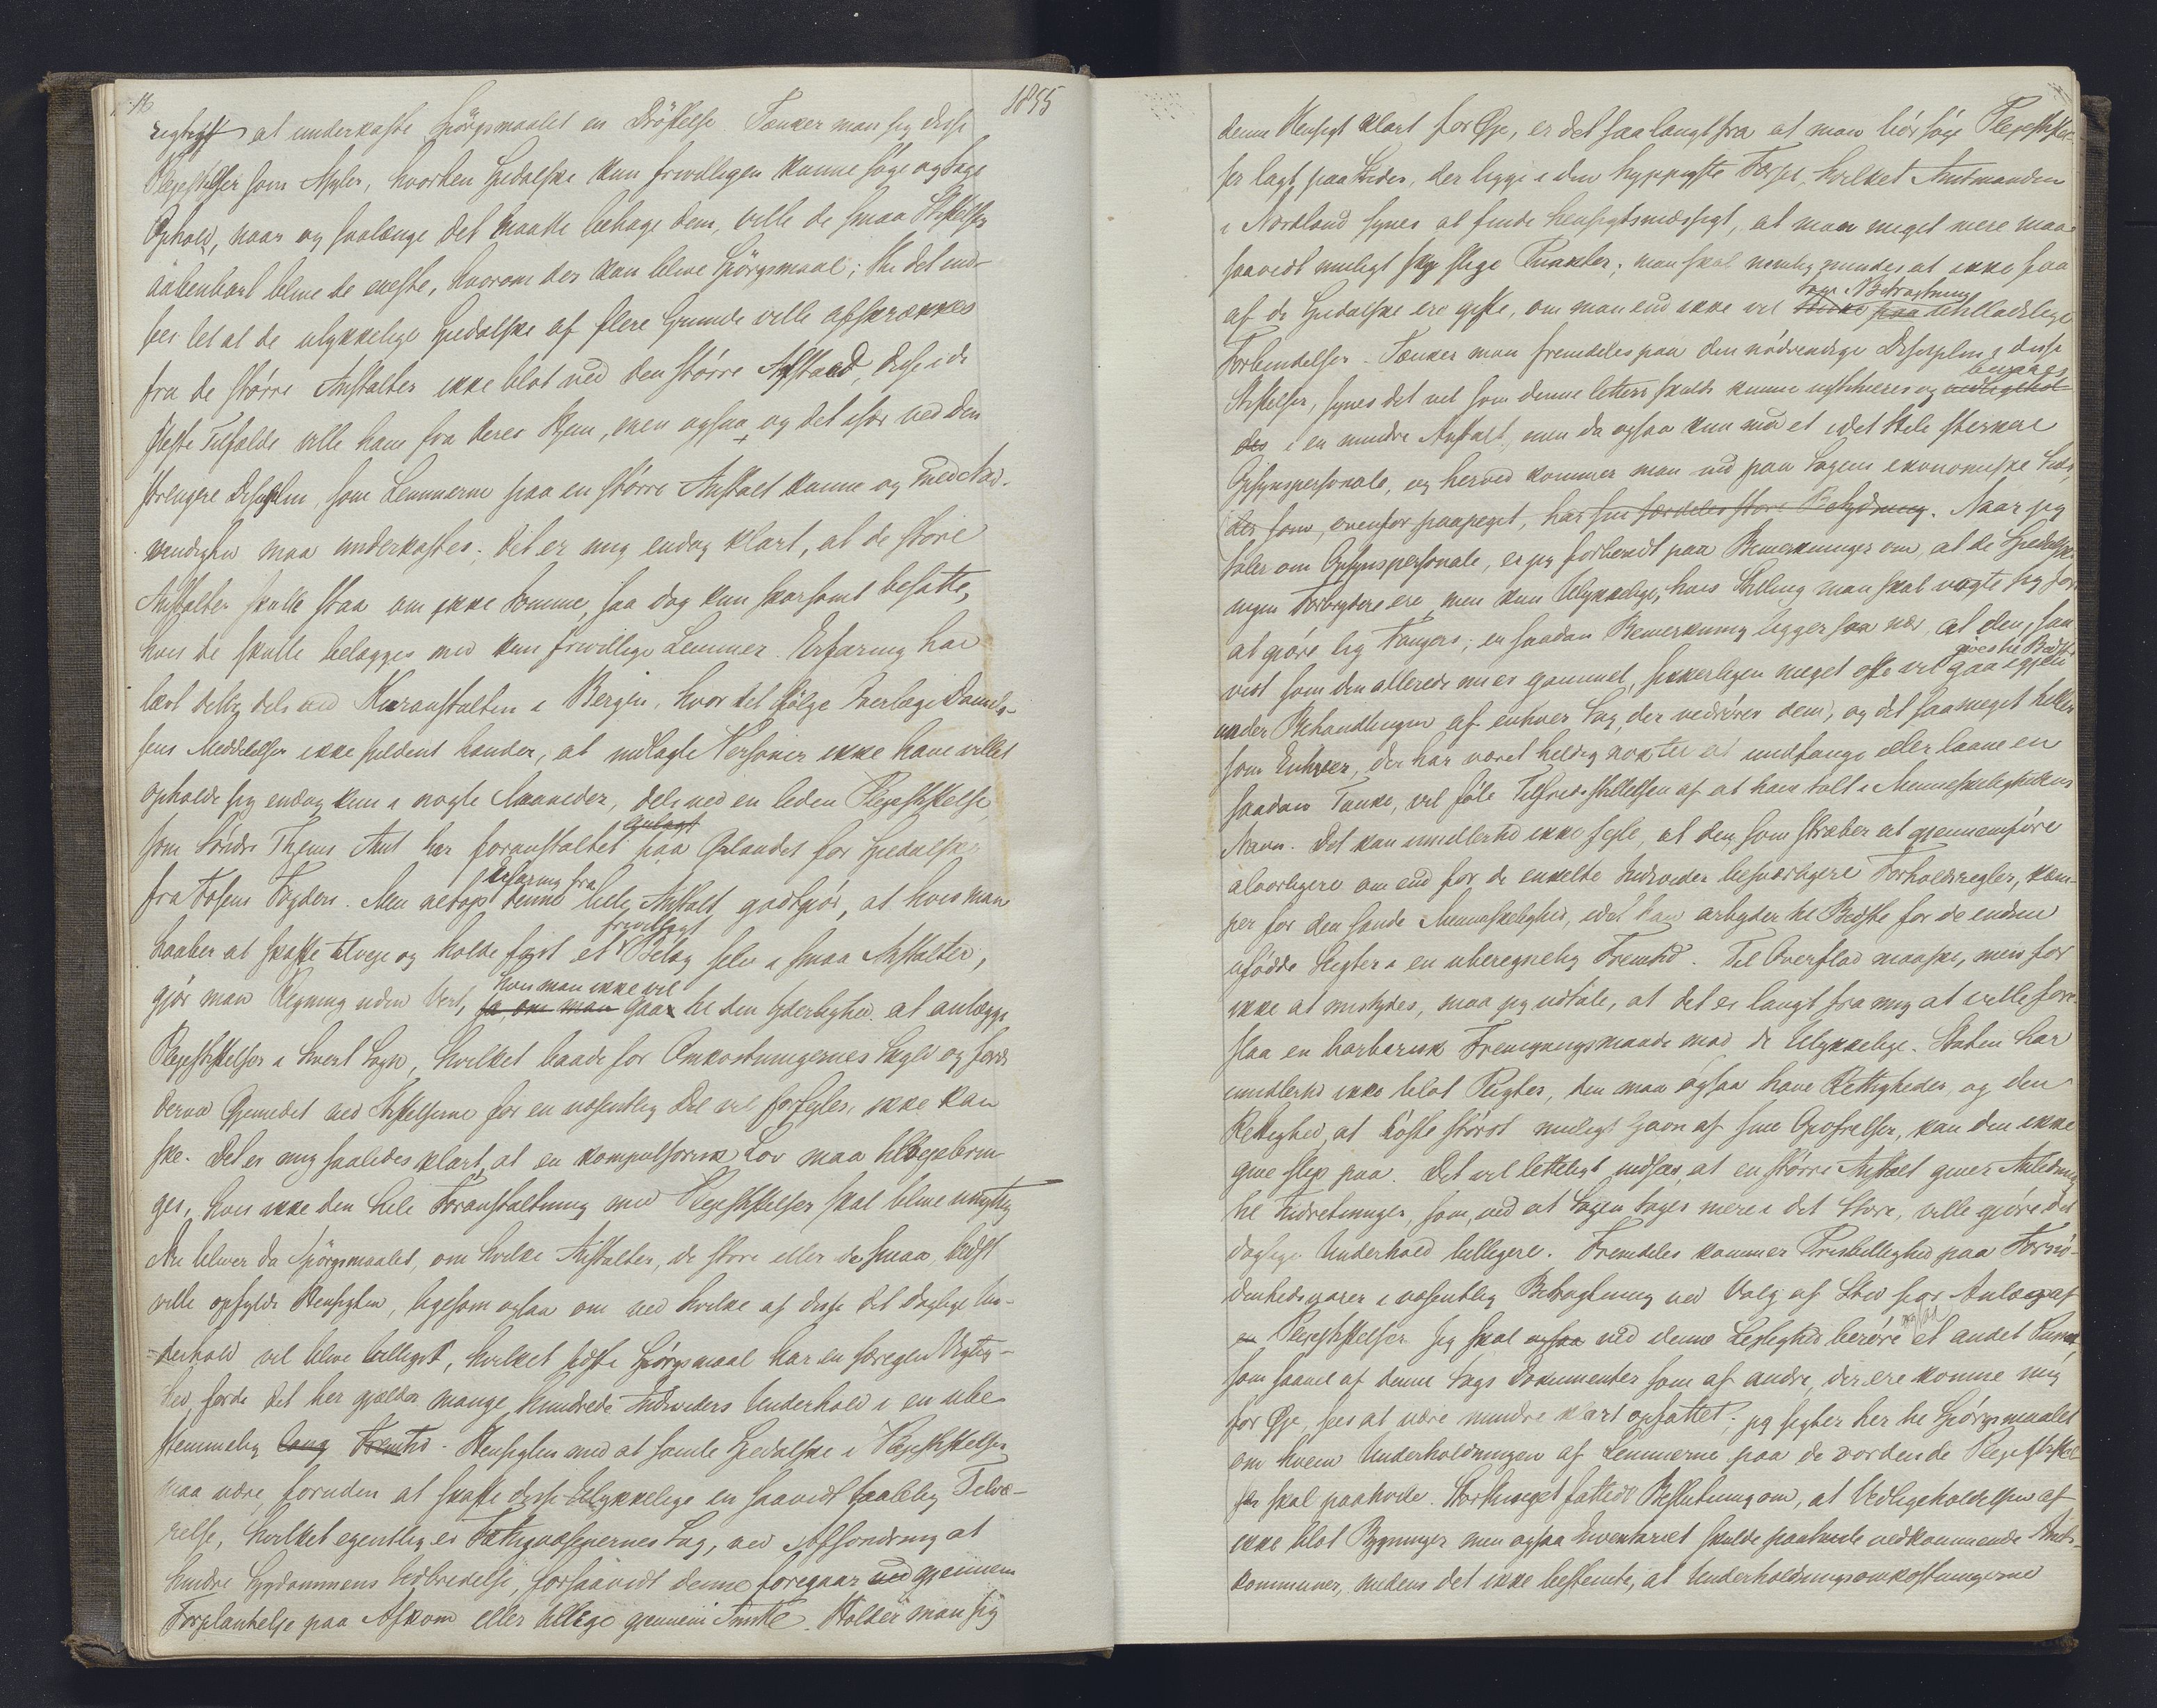 16
1855
rigtigst at underkaste Spörgsmaalet en Dröftelse. Tænker man sig disse
Plejestiftelser som Asyler, hvorhen Spedalske kun frivilligen kunne söge og tage
Ophold, naar og saalænge det maatte behage dem, ville de smaa Stiftelser
aabenbart blive de eneste, hvorom der kan blive Spörgsmaal; thi det ind-
sees let at de ulykkelige Spedalske af flere Grunde ville afskrækkes
fra de större Anstalter ikke blot ved den större Afstand, disse i de
fleste Tilfælde ville have fra deres Hjem, men ogsaa, og det især ved den
strengere Disciplin, som Lemmerne paa en större Anstalt kunne og med Nöd-
vendighed maa underkastes. Det er mig endog klart, at de större
Anstalter skulle staa om ikke tomme, saa dog kun sparsomt besatte,
hvis de skulle belægges med kun frivillige Lemmer. Erfaring har
lært dette, dels ved Kuranstalten i Bergen, hvor det ifölge Overlæge Daniels-
sens Meddelelser ikke sjeldent hænder, at indlagte Personer ikke have villet
opholde sig endog kun i nogle Maaneder, dels ved en liden Plejestiftelse,
anlagt
som Söndre Thjems Amt har foranstaltet paa Ørlandet for Spedalske
Erfaring fra
fra Fosens Fogderi. Men netop denne lille Anstalt godtgjör, at hvis man
frivilligt
haaber at skaffe tilveje og holde fast et Belæg selv i smaa Anstalter,
hvis man ikke vil
gjör man Regning uden Vert, ja, om man gaar til den Yderlighed at anlægge
Plejestiftelser i hvert Sogn, hvilket baade for Omkostningernes Skyld og fordi
derved Øjemedet ved Stiftelserne for en væsentlig Del vil forfejles, ikke kan
ske. Det er mig saaledes klart, at en kompulsorisk Lov maa tilvejebrin-
ges, hvis ikke den hele Foranstaltning med Plejestiftelser skal blive unyttig
Nu bliver da Spörgsmaalet, om hvilke Anstalter, de store eller de smaa, bedst
ville opfylde Hensigten, ligesom ogsaa om ved hvilke af disse det daglige Un-
derhold vil blive billigst, hvilket sidste Spörgsmaal har en særegen Vigtig-
hed, fordi det her gjælder mange hundrede Individers Underhold i en ube-
stemmelig lang Fremtid. Hensigten med at samle Spedalske i Plejestiftelser
maa være, foruden at skaffe disse Ulykkelige en saavidt taalelig Tilvæ-
relse, hvilket egentlig er Fattigvæsenernes Sag, ved Afsondring at
hindre Sygdommens Udbredelse, forsaavidt denne foregaar ved gjennem
Forplantelse paa Afkom eller tillige gjennem Smitte. Holder man sig
denne Hensigt klart for Øje, er det saa langt fra at man bör söge Plejestiftel-
ser lagt paa Steder, der ligge i den hyppigste Færsel, hvilket Amtmanden
i Nordland synes at finde hensigtsmæssigt, at man meget mere maa
saavidt muligt sky slige Punkter; man skal nemlig mindes at ikke faa
tage i Betragtning
af de Spedalske ere gifte, om man end ikke vil tænke paa utilladelige
Forbindelser. Tænker man fremdeles paa den nödvendige Disciplin i disse
bevares
Stiftelser, synes det vel som denne lettere skulde kunne institueres og vedligehol-
des i en mindre Anstalt, men da ogsaa kun med et i det Hele sterkere
Opsynspersonale, og herved kommer man ind paa Sagens ekonomiske Side,
der som, ovenfor paapeget, har sin særdeles store Betydning. Naar jeg
taler om Opsynspersonale, er jeg forberedt paa Bemerkninger om, at de Spedalske
ingen Forbrydere ere, men kun Ulykkelige, hvis Stilling man skal vogte sig for
at gjöre lig Fangers; en saadan Bemerkning ligger saa nær, at den, saa
gives til Bedste
vist som den allerede nu er gammel, sikkerligen meget ofte vil gaa igjen
under Behandlingen af enhver Sag, der vedrörer dem, og det saameget heller
som Enhver, der har været heldig nok til at undfange eller laane en
saadan Tanke, vil föle Tilfredsstillelsen af at have talt i Menneskelighedens
Navn. Det kan imidlertid ikke fejle, at den, som stræber at gjennemföre
alvorligere om end for de enkelte Individer besværligere Forholdsregler, kjæm-
per for den sande Menneskelighed, idet han arbejder til Bedste for de endnu
uföddte Slegter i en uberegnelig Fremtid. Til Overflod maaske, men for
ikke at mistydes, maa jeg udtale, at det er langt fra mig at ville fore-
slaa en barbarisk Fremgangsmaade mod de Ulykkelige. Staten har
imidlertid ikke blot Pligter, den maa ogsaa have Rettigheder, og den
Rettighed, at höste störst muligt Gavn af sine Opofrelser, kan den ikke
give slip paa. Det vil letteligt indsees, at en större Anstalt giver Anledning
til Indretninger, som, ved at Sagen tages mere i det Store, ville gjöre det
daglige Underhold billigere. Fremdeles kommer Prisbillighed paa Fornö-
denhedsvarer i væsentlig Betragtning ved Valg af Sted for Anlæg af
ogsaa
en Plejestiftelse. Jeg skal ogsaa ved denne Leilighed beröre et andet Punkt,
som saavel af denne Sags Dokumenter som af andre, der ere komne mig
for Øje, sees at være mindre klart opfattet; jeg sigter her til Spörgsmaalet
om hvem Underholdningen af Lemmerne paa de vordende Plejestiftel-
ser skal paahvile. Storthinget fattede Beslutning om, at Vedligeholdelsen af
ikke blot Bygninger men ogsaa Inventariet skulde paahvile vedkommende Amts-
kommuner, medens det ikke bestemte, at Underholdningsomkostningerne